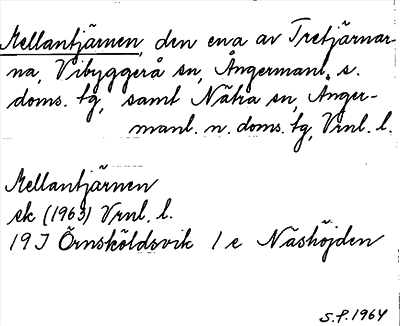 Mellantjärnen, den ena av Tretjärnar-
na, Vibyggerå sn, Ångermanl. s.
doms. tg, samt Nätra sn, Ånger-
manl. n. doms. tg, Vrnl. l.
Mellantjärnen
ek (1963) Vrnl. l.
19J Örnsköldsvik 1 e Näshöjden
S.P. 1964